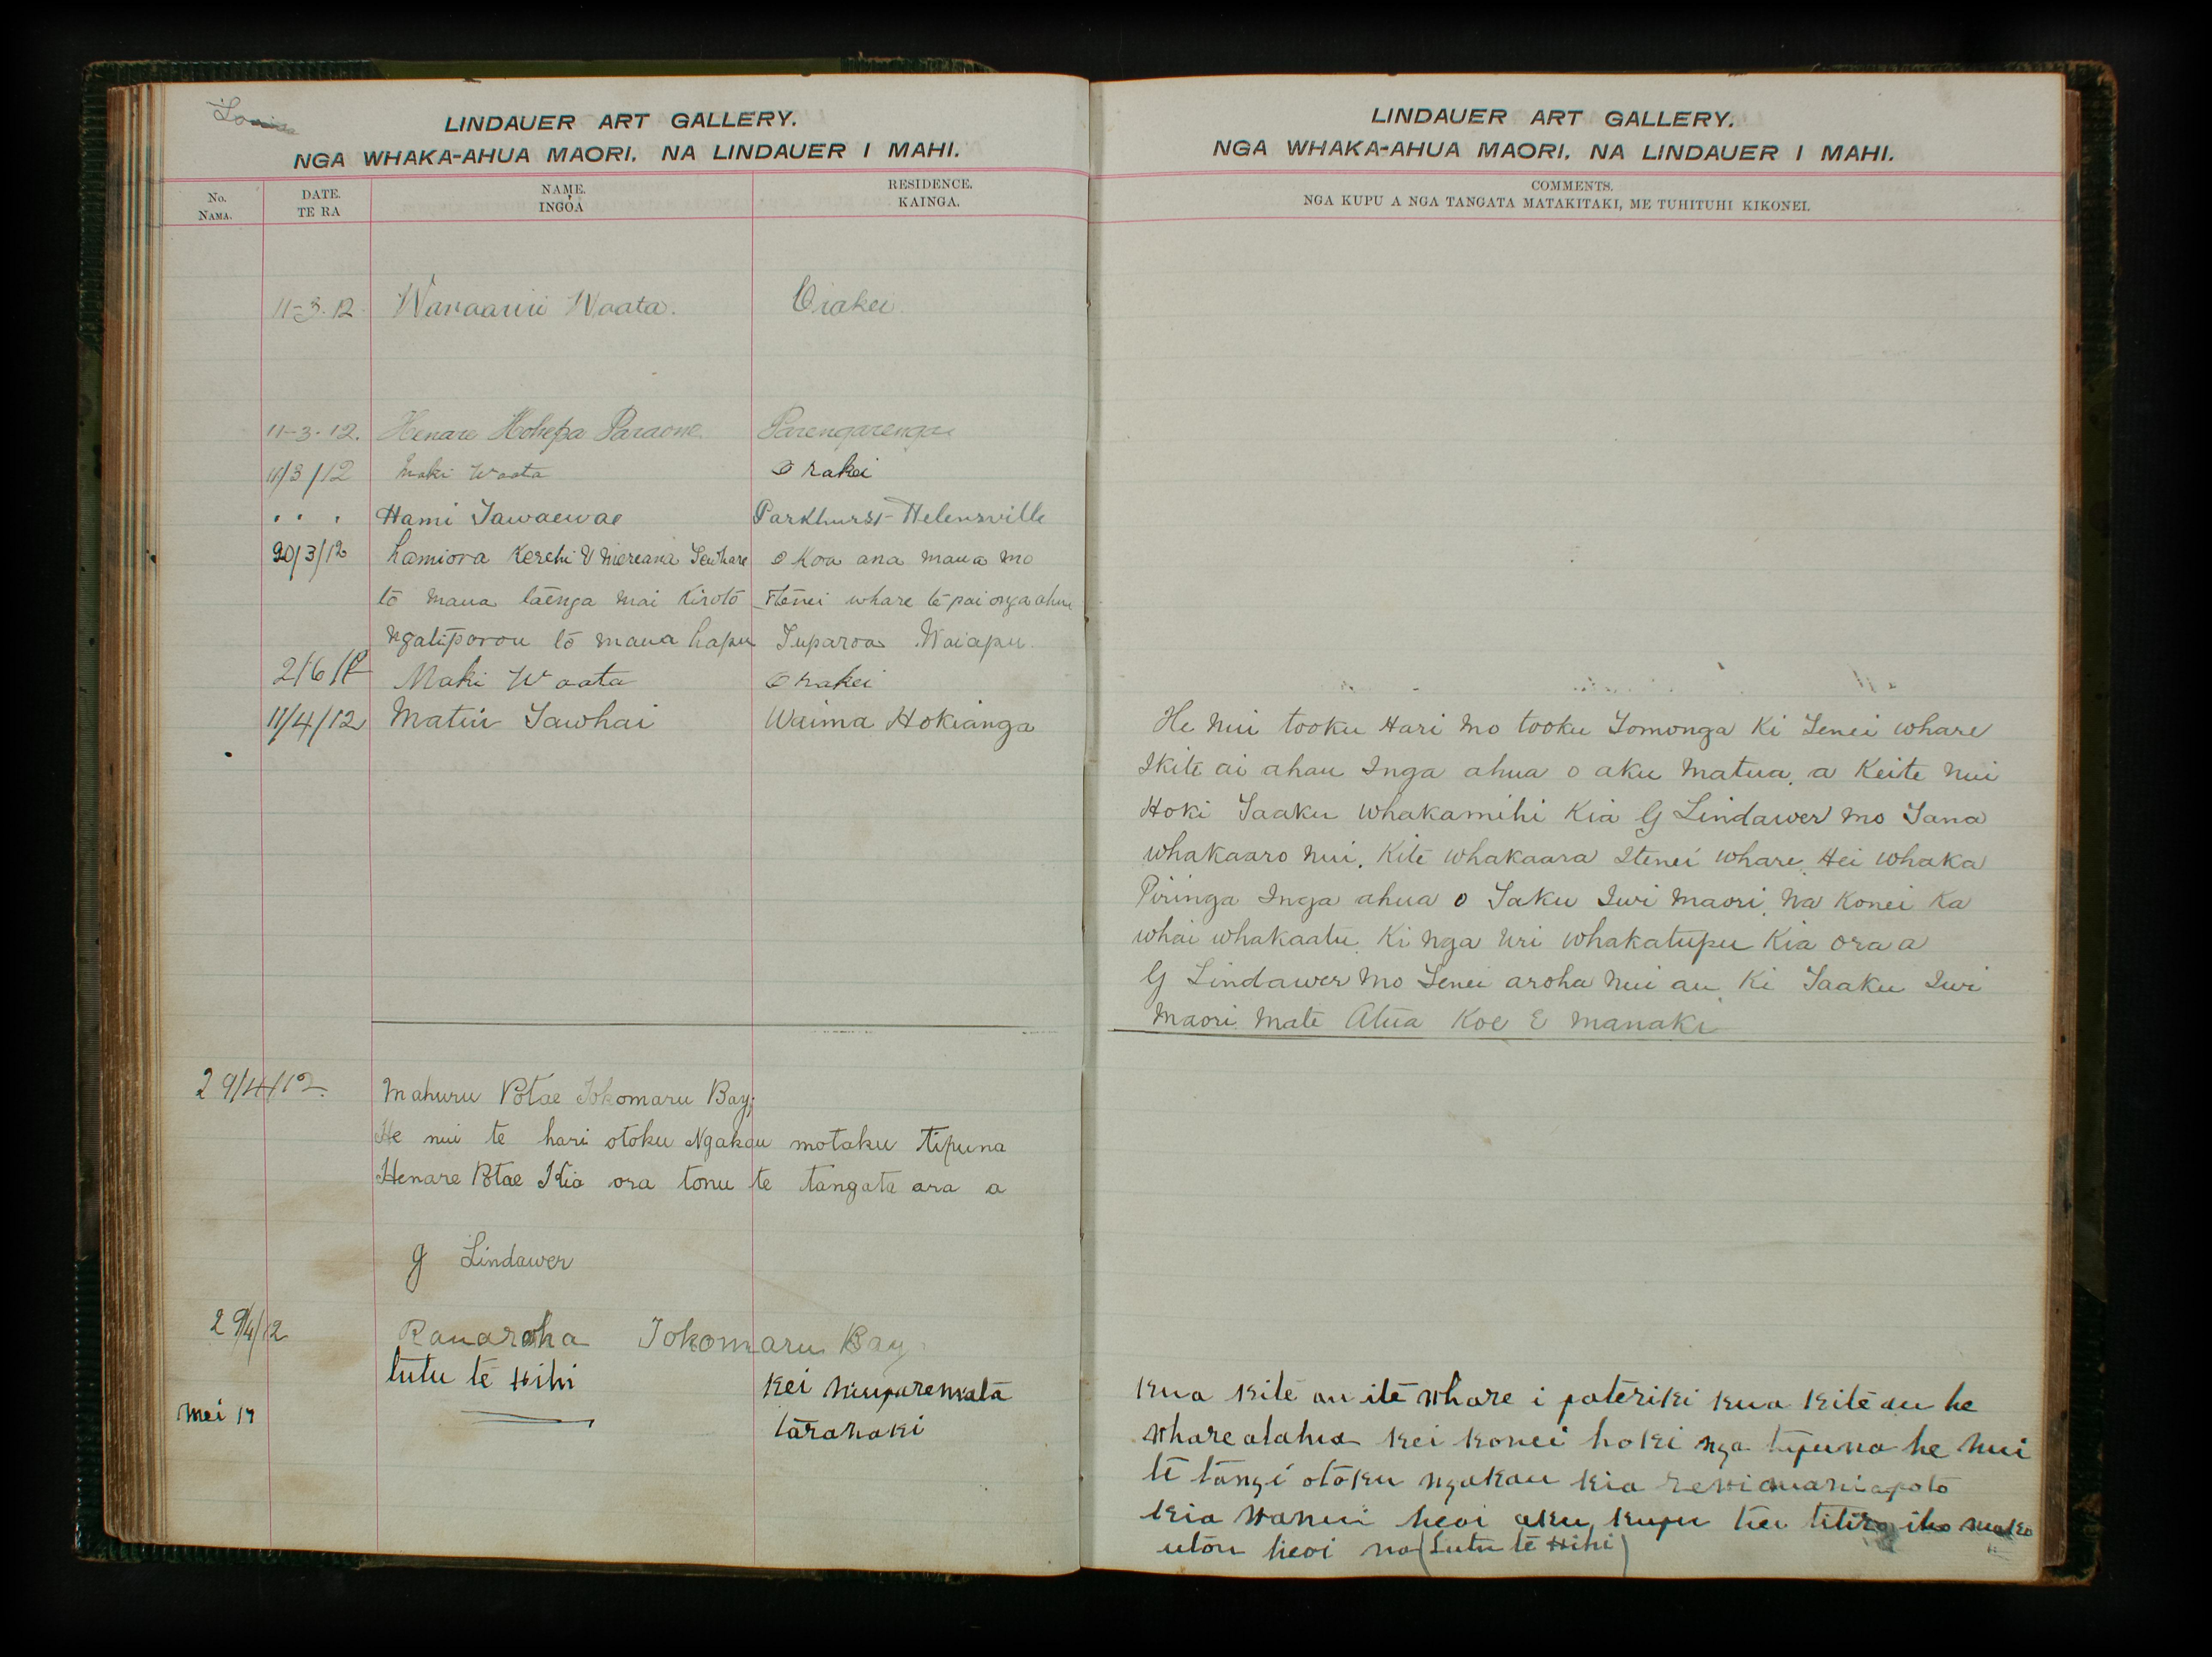 LINDAUER ART GALLERY.
NGA WHAKA-AHUA MAORI. NA LINDAUER I MAHI.
No.
NAMA.
DATE.
TE RA
NAME.
INGOA
RESIDENCE.
KAINGA.
11-3-12. Waata. Orakei.
11-3-12. Henare Hohepa Paraone Parengarenga
11/3/12 Maki Waata Orakei
" " " Hami Tawaewae Parkhurst-Helensville
20/3/12 hamiora Kerehi & mereana Tewhare o Koa ana maua mo
to maua taenga mai Kiroto Itenei whare te pai onga ahua
ngatiporou to maua hapu Tuparoa Waiapu.
Maki Waata Orakei
11/4/12 Matiu Tawhai Waima Hokianga
29/4/12. Mahuru Potae Tokomaru Bay;
He nui te hari otoku Ngakau motaku tipuna
Henare Potae Kia ora tonu te tangata ara a
G Lindawer
29/4/12 Rauaroha Tokomaru Bay
tutu te Hihi Kei
Mei 17 taranaki
LINDAUER ART GALLERY.
NGA WHAKA-AHUA MAORI. NA LINDAUER I MAHI.
COMMENTS.
NGA KUPU A NGA TANGATA MATAKITAKI, ME TUHITUHI KIKONEI.
He Nui tooku Hari mo tooku Tomonga Ki Tenei whare
Ikite ai ahau Inga ahua o aku Matua. a Keite Nui
Hoki Taaku Whakamihi Kia G Lindawer mo Tana
whakaaro Nui. Kite whakaara Itenei whare. Hei whaka
Piringa Inga ahua o Taku Iwi Maori. Na Konei Ka
whai whakaatu Ki Nga Uri Whakatupu Kia ora a
G Lindawer Mo Tenei aroha Nui au. Ki Taaku Iwi
Maori. Mate Atua Koe E Manaki
Kua Kite au ite whare i pateriki Kua Kite au he
whare ataahua Kei Konei hoki nga tipuna he nui
te tangi otoku ngakau Kia rewi maniapoto
Kia heoi aku Kupu hei titiro iho
utou heoi na (tutu te Hihi)